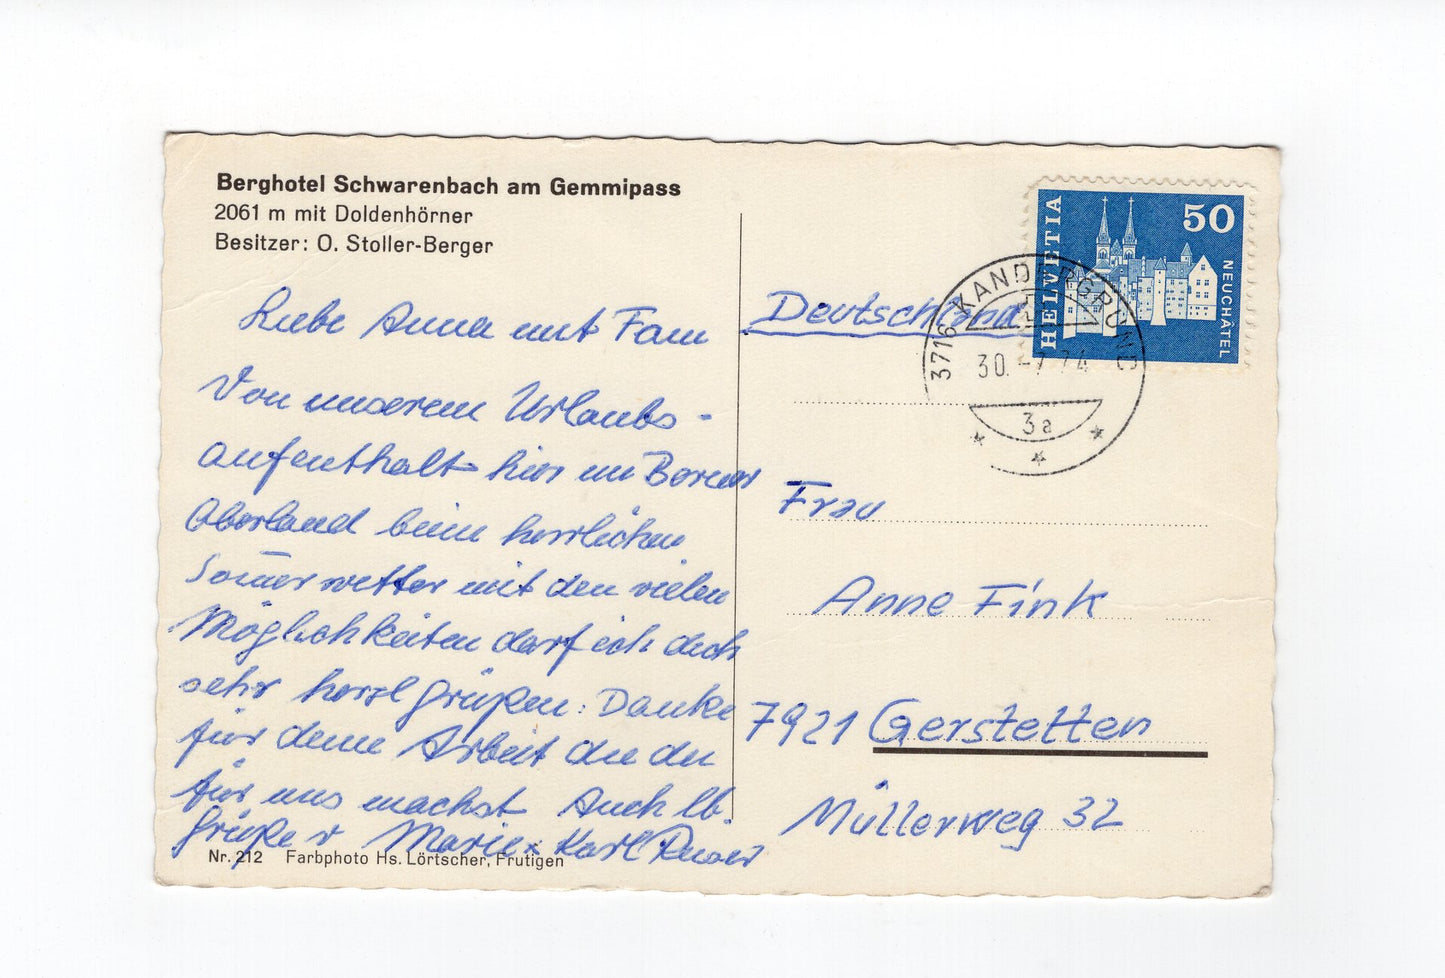 Berghotel Schwarenbach am Gemmipass
2061 m mit Doldenhörner
Besitzer: O. Stoller-Berger
Liebe Anna mit Fam
Von unserem Urlaubs-
aufenthalt hier im Berner
Oberland beim herrlichen
Somerwetter mit den vielen
Möglichkeiten darf ich dich
sehr herzl grüßen. Danke
für deine Arbeit die du
für uns machst Auch lb.
Grüße v Marie Karl
Nr. 212 Farbphoto Hs. Lörtscher, Frutigen
HELVETIA
50
NEUCHÂTEL
3716 KANDERGRUND
30.-7.74
3a
Deutschland
Frau
Anne Fink
7921 Gerstetten
Müllerweg 32